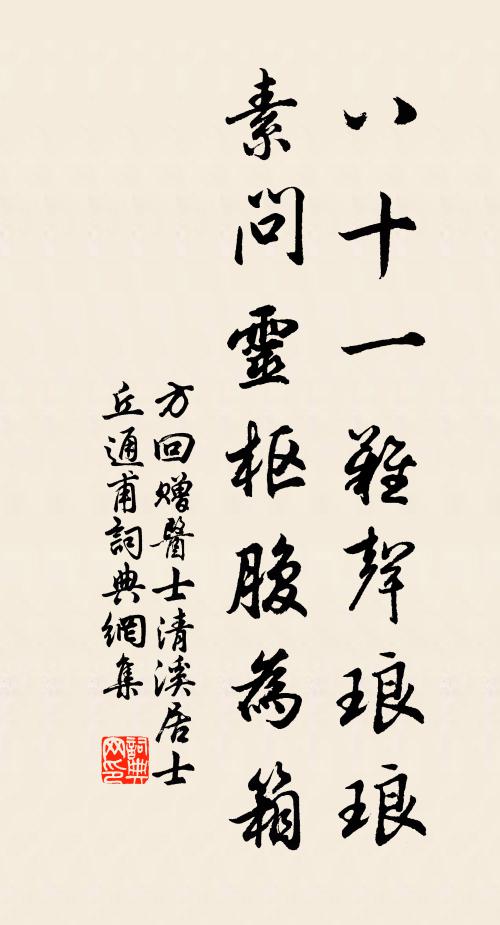 八十一難聲琅琅
素問靈枢腹為箱
方回贈醫士清溪居士
丘通甫詞典網集
詞典网印